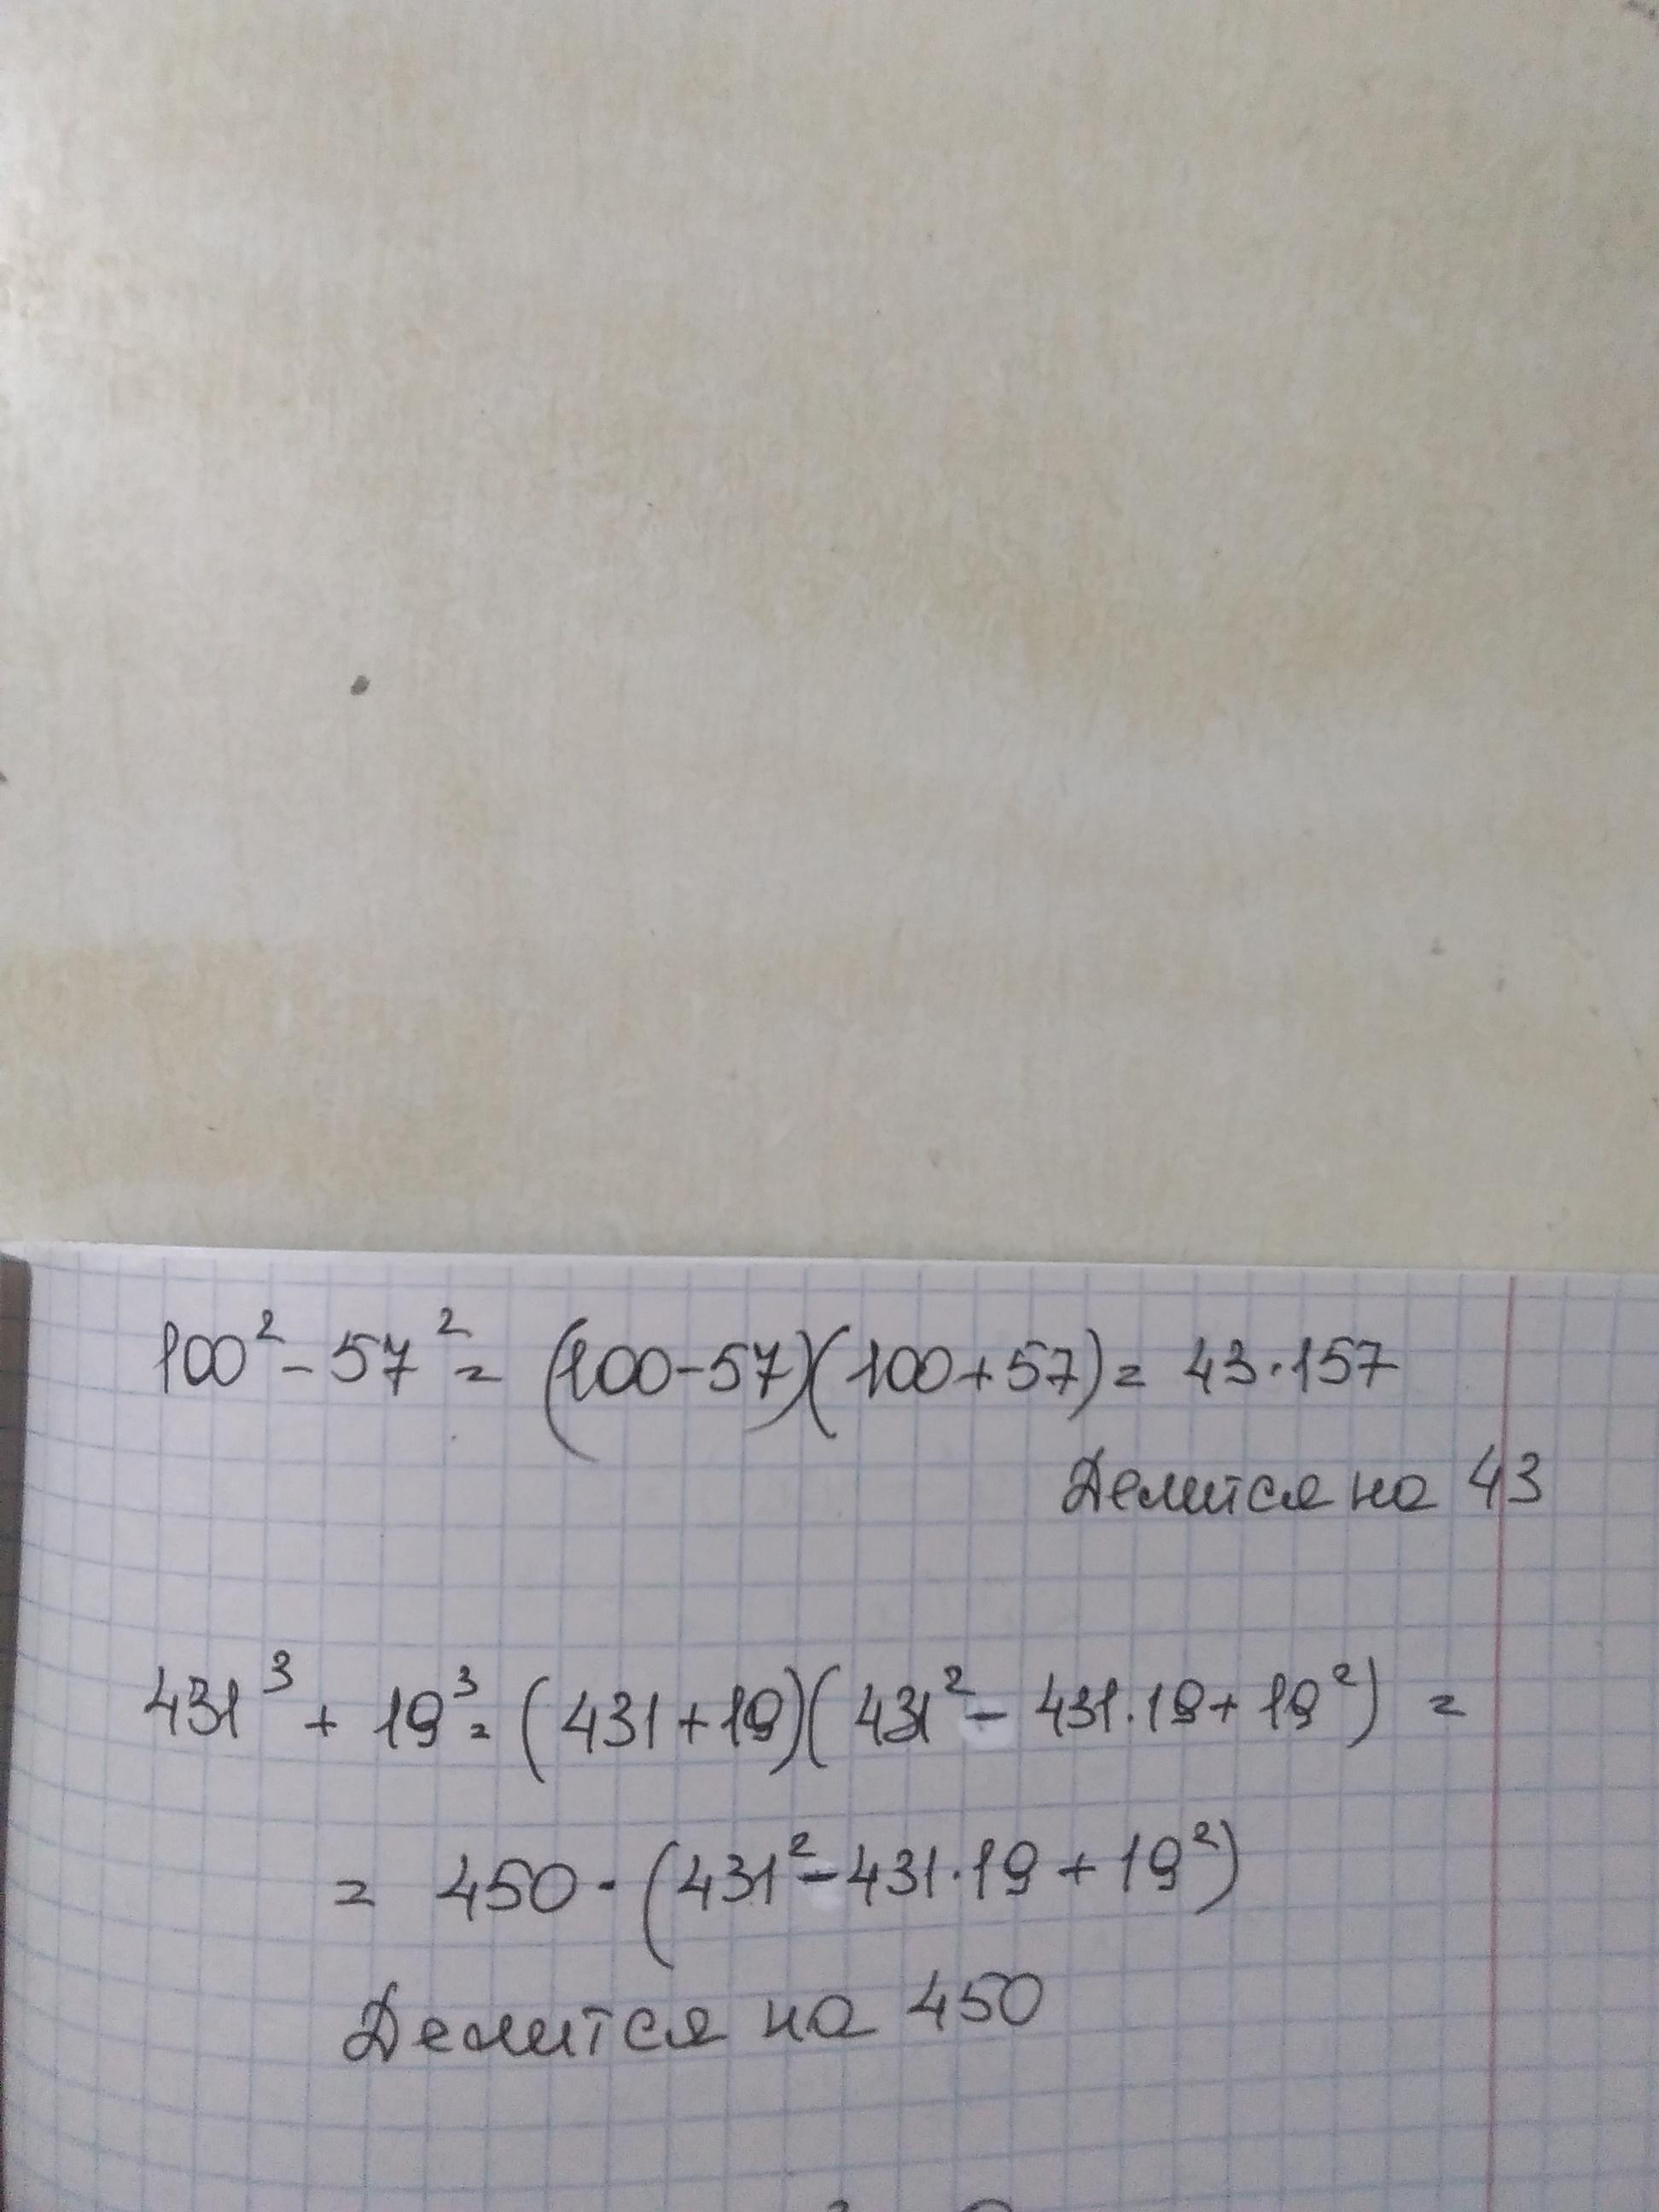 100² - 57² = (100-57)(100+57) = 43·157
Делится на 43
431³ + 19³ = (431+19)(431² - 431·19 + 19²) =
= 450·(431² - 431·19 + 19²)
Делится на 450